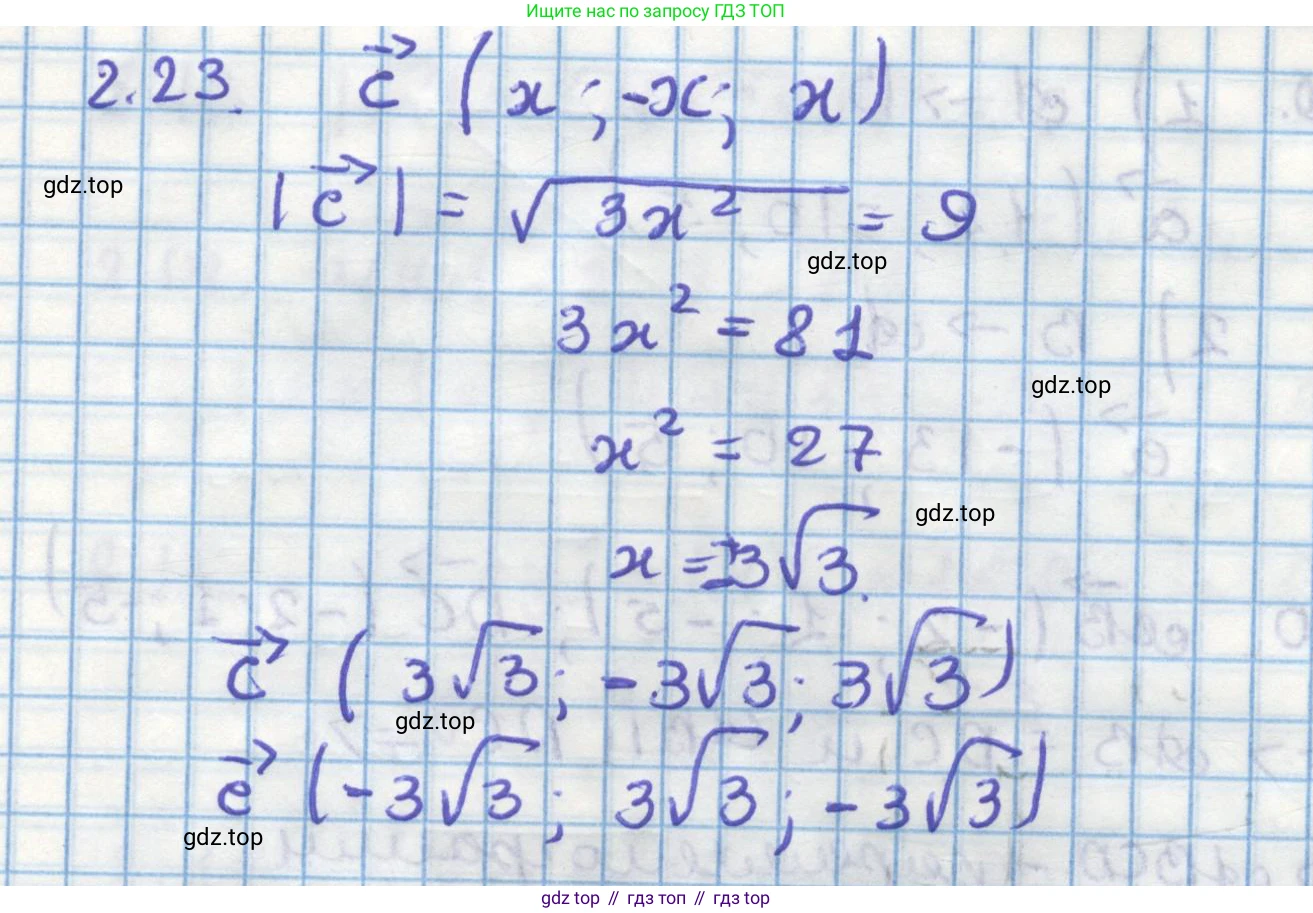 Ищите нас по запросу ГДЗ ТОП
2.23. c⃗ (x; -x; x)
gdz.top
|c⃗| = √3x² = 9
gdz.top
3x² = 81
gdz.top
x² = 27
gdz.top
x = ±3√3.
c⃗ (3√3; -3√3; 3√3)
gdz.top
c⃗ (-3√3; 3√3; -3√3)
gdz.top
gdz top // гдз топ // gdz.top